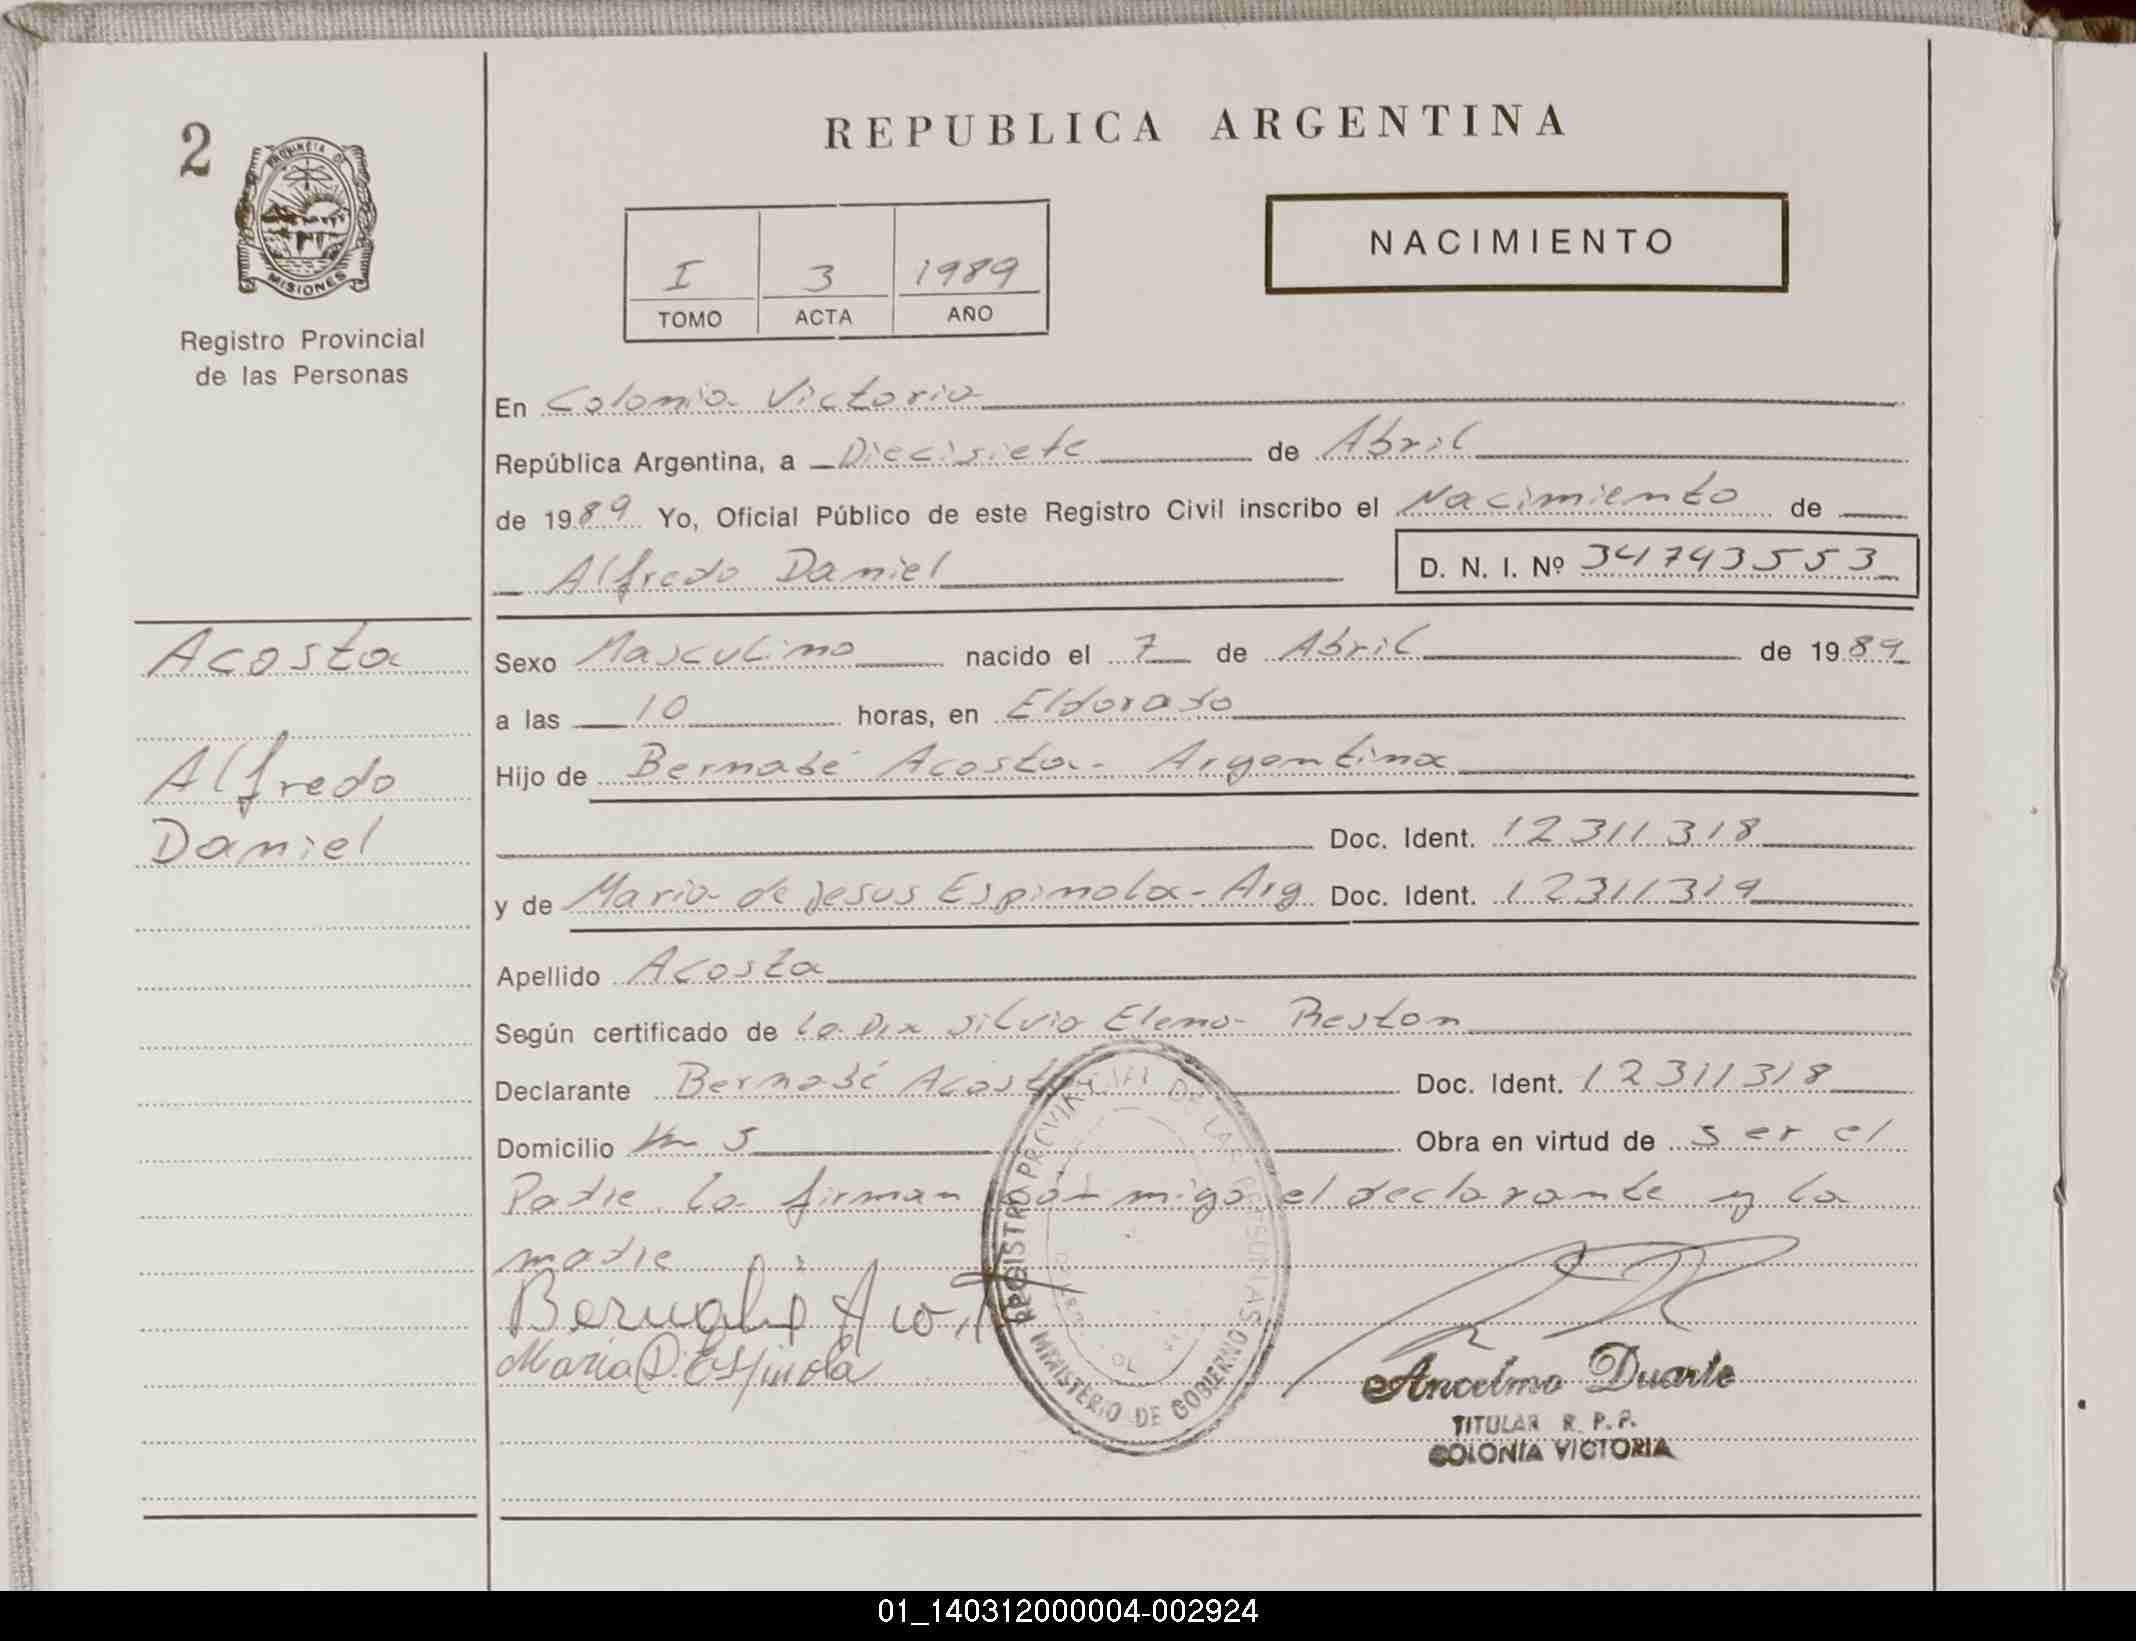 2
PROVINCIA DE
MISIONES
Registro Provincial
de las Personas
REPUBLICA ARGENTINA
I 3 1989
TOMO ACTA AÑO
NACIMIENTO
En Colonia Victoria
República Argentina, a Diecisiete de Abril
de 1989 Yo, Oficial Público de este Registro Civil inscribo el Nacimiento de
Alfredo Daniel D. N. I. Nº 34743553
Acosta
Alfredo
Daniel
Sexo Masculino nacido el 7 de Abril de 1989
a las 10 horas, en Eldorado
Hijo de Bernabé Acosta - Argentina
Doc. Ident. 12311318
y de Maria de Jesus Espinola - Arg Doc. Ident. 12311319
Apellido Acosta
Según certificado de la Dra Silvia Elena Reston
Declarante Bernabé Acosta Doc. Ident. 12311318
Domicilio Km 5 Obra en virtud de ser el
Padre la firman con migo el declarante y la
madre
Maria D. Espinola
REGISTRO PROVINCIAL DE LAS PERSONAS
MINISTERIO DE GOBIERNO
Ancelmo Duarte
TITULAR R. P. P.
COLONIA VICTORIA
01_140312000004-002924